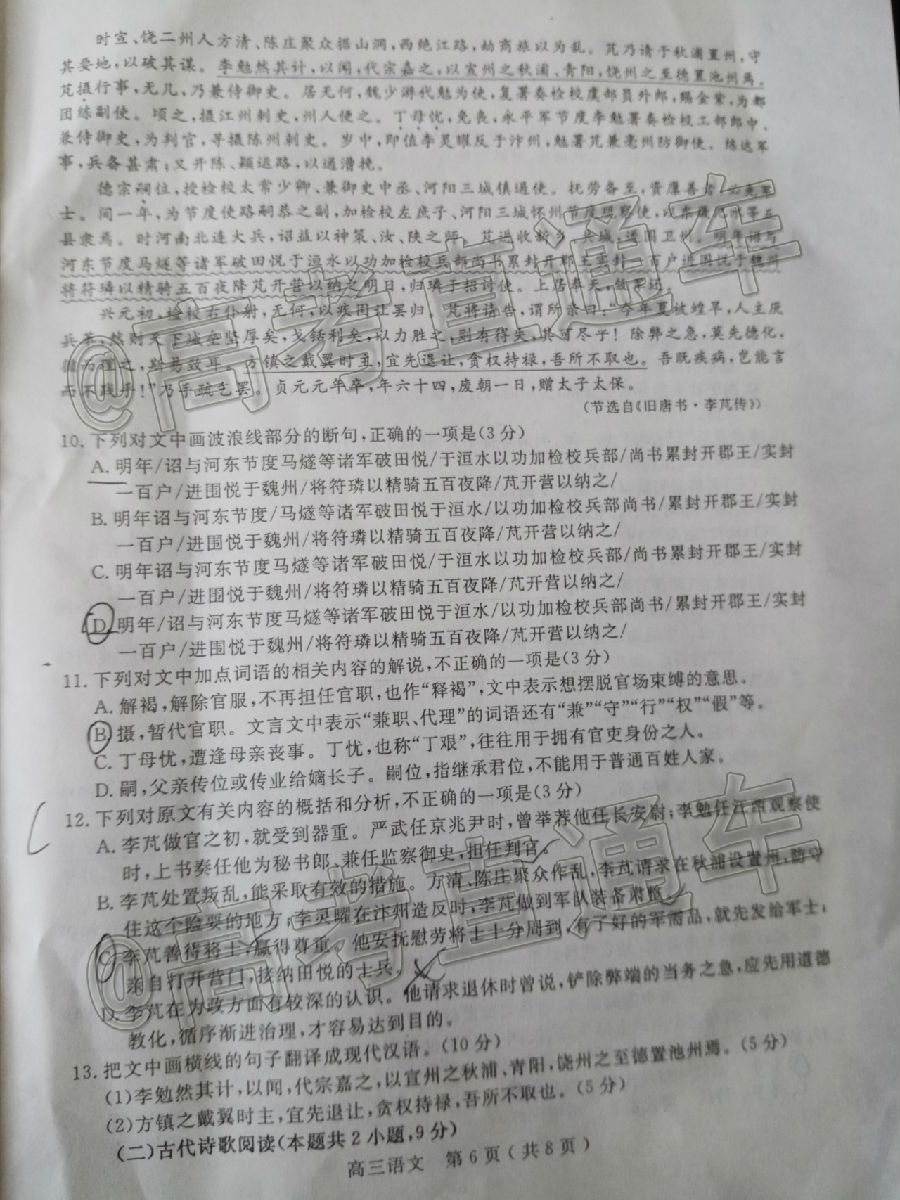 时宣、饶二州人方清、陈庄聚众据山洞,西绝江路,劫商旅以为乱。芃乃请于秋浦置州,守
其要地,以破其谋。李勉然其计,以闻,代宗嘉之,以宣州之秋浦、青阳,饶州之至德置池州焉。
芃摄行事,无几,乃兼侍御史。居无何,魏少游代勉为使,复署奏检校虞部员外郎,赐金紫,为都
团练副使。顷之,摄江州刺史,州人便之。丁母忧,免丧,永平军节度李勉署奏检校工部郎中、
兼侍御史,为判官,寻摄陈州刺史。岁中,即值李灵曜反于汴州,勉署芃兼亳州防御使。练达军
事,兵备甚肃;又开陈、颍运路,以通漕挽。
德宗嗣位,授检校太常少卿、兼御史中丞、河阳三城镇遏使。抚劳备至,资廪善者,必先军
士。间一年,为节度使路嗣恭之副,加检校左庶子、河阳三城怀州节度观察使,以东畿汜水等五
县隶焉。时河南北连大兵,诏益以神策、汝、陕之师。芃进收新乡、共城,遂围卫州。明年诏与
河东节度马燧等诸军破田悦于洹水以功加检校兵部尚书累封开郡王实封一百户进围悦于魏州
将符璘以精骑五百夜降芃开营以纳之明日,归璘于招讨使。上居奉天,敛军还。
兴元初,检校右仆射,无何,以疾固让罢归。芃将请告,谓所亲曰:“今年夏被蝗旱,人主厌
兵革,然则天下城垒坚厚矣,戈铤利矣,以力胜之,则有得失,其可尽乎!除弊之急,莫先德化,
循
方镇之戴翼时主,宜先退让,贪权持禄,吾所不取也。吾既疾病,岂能言
而不践乎!”乃手疏乞罢。贞元元年卒,年六十四,废朝一日,赠太子太保。
(节选自《旧唐书·李芃传》)
10.下列对文中画波浪线部分的断句,正确的一项是(3分)
A.明年/诏与河东节度马燧等诸军破田悦/于洹水以功加检校兵部/尚书累封开郡王/实封
一百户/进围悦于魏州/将符璘以精骑五百夜降/芃开营以纳之/
B.明年诏与河东节度/马燧等诸军破田悦于洹水/以功加检校兵部尚书/累封开郡王/实封
一百户/进围悦于魏州/将符璘以精骑五百夜降/芃开营以纳之/
C.明年诏与河东节度马燧等诸军破田悦/于洹水以功加检校兵部/尚书累封开郡王/实封
一百户/进围悦于魏州/将符璘以精骑五百夜降/芃开营以纳之/
D.明年/诏与河东节度马燧等诸军破田悦于洹水/以功加检校兵部尚书/累封开郡王/实封
一百户/进围悦于魏州/将符璘以精骑五百夜降/芃开营以纳之/
11.下列对文中加点词语的相关内容的解说,不正确的一项是(3分)
A.解褐,解除官服,不再担任官职,也作“释褐”,文中表示想摆脱官场束缚的意思。
B.摄,暂代官职。文言文中表示“兼职、代理”的词语还有“兼”“守”“行”“权”“假”等。
C.丁母忧,遭逢母亲丧事。丁忧,也称“丁艰”,往往用于拥有官吏身份之人。
D.嗣,父亲传位或传业给嫡长子。嗣位,指继承君位,不能用于普通百姓人家。
12.下列对原文有关内容的概括和分析,不正确的一项是(3分)
A.李芃做官之初,就受到器重。严武任京兆尹时,曾举荐他任长安尉;李勉任江西观察使
时,上书奏任他为秘书郎、兼任监察御史,担任判官。
B.李芃处置叛乱,能采取有效的措施。方清、陈庄聚众作乱,李芃请求在秋浦设置州,踞守
住这个险要的地方;李灵曜在汴州造反时,李芃做到军队装备肃整。
C.李芃善待将士,赢得尊重。他安抚慰劳将士十分周到,有了好的军需品,就先发给军士;
亲自打开营门,接纳田悦的士兵。
D.李芃在为政方面有较深的认识。他请求退休时曾说,铲除弊端的当务之急,应先用道德
教化,循序渐进治理,才容易达到目的。
13.把文中画横线的句子翻译成现代汉语。(10分)
(1)李勉然其计,以闻,代宗嘉之,以宣州之秋浦、青阳,饶州之至德置池州焉。(5分)
(2)方镇之戴翼时主,宜先退让,贪权持禄,吾所不取也。(5分)
(二)古代诗歌阅读(本题共2小题,9分)
高三语文 第6页(共8页)
@高考直通车
@高考直通车